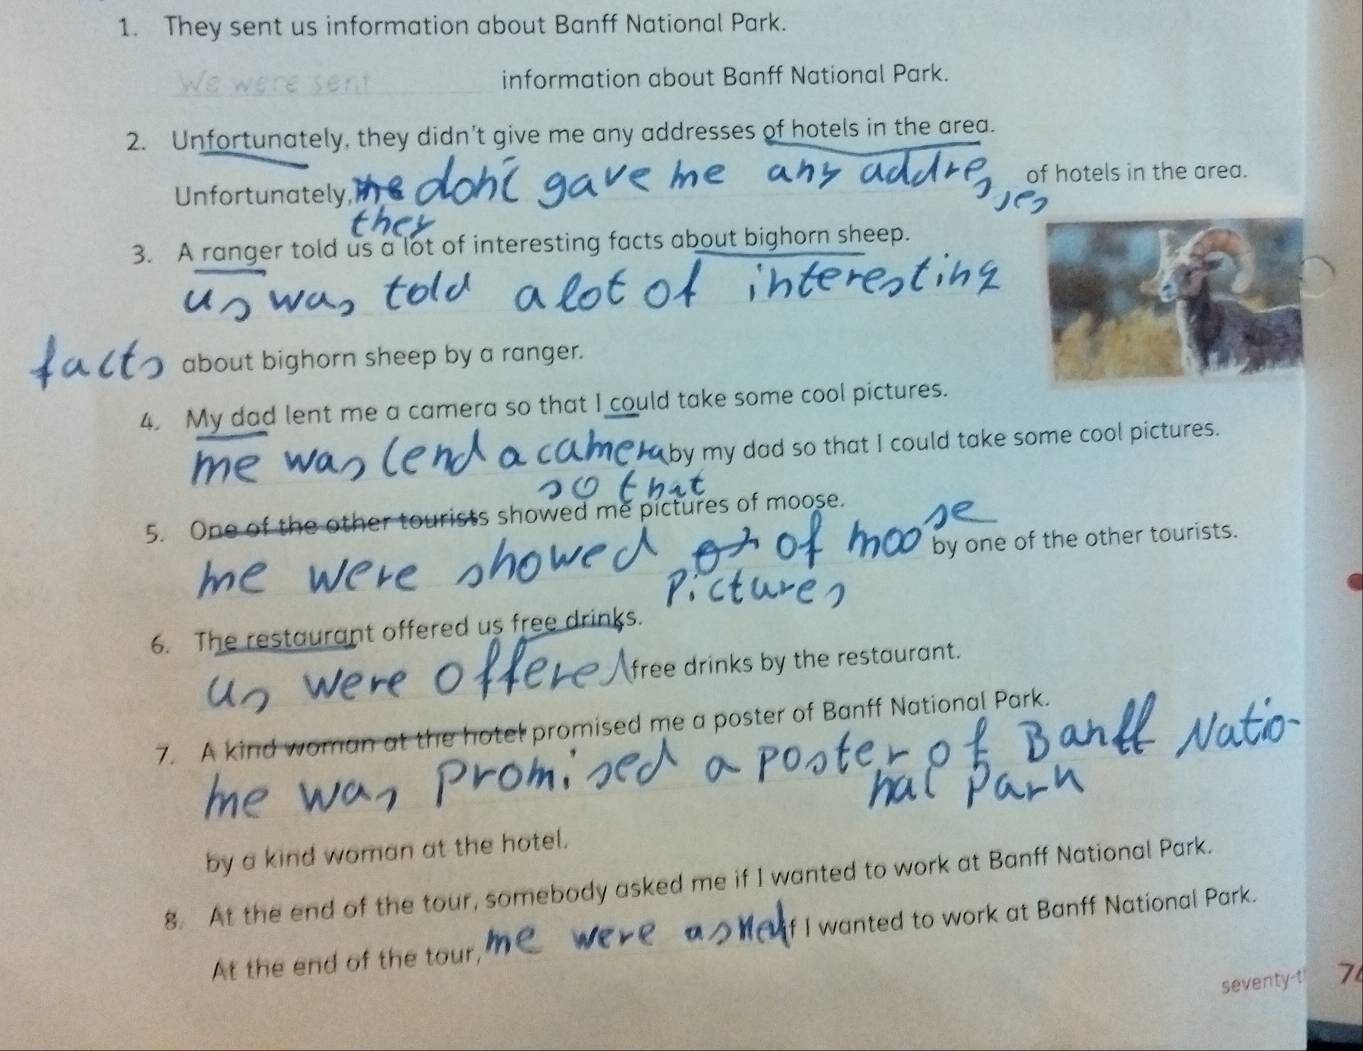 1. They sent us information about Banff National Park.
We were sent information about Banff National Park.
2. Unfortunately, they didn't give me any addresses of hotels in the area.
Unfortunately, dont gave me any addre of hotels in the area.
they ses
3. A ranger told us a lot of interesting facts about bighorn sheep.
us was told a lot of interesting
facts about bighorn sheep by a ranger.
4. My dad lent me a camera so that I could take some cool pictures.
me was lend a camera by my dad so that I could take some cool pictures.
so that
5. One of the other tourists showed me pictures of moose.
me were showed of moose by one of the other tourists.
pictures
6. The restaurant offered us free drinks.
us were offered free drinks by the restaurant.
7. A kind woman at the hotel promised me a poster of Banff National Park.
me was promised a poster of Banff Natio-
nal Park
by a kind woman at the hotel.
8. At the end of the tour, somebody asked me if I wanted to work at Banff National Park.
At the end of the tour, me were asked if I wanted to work at Banff National Park.
seventy-t